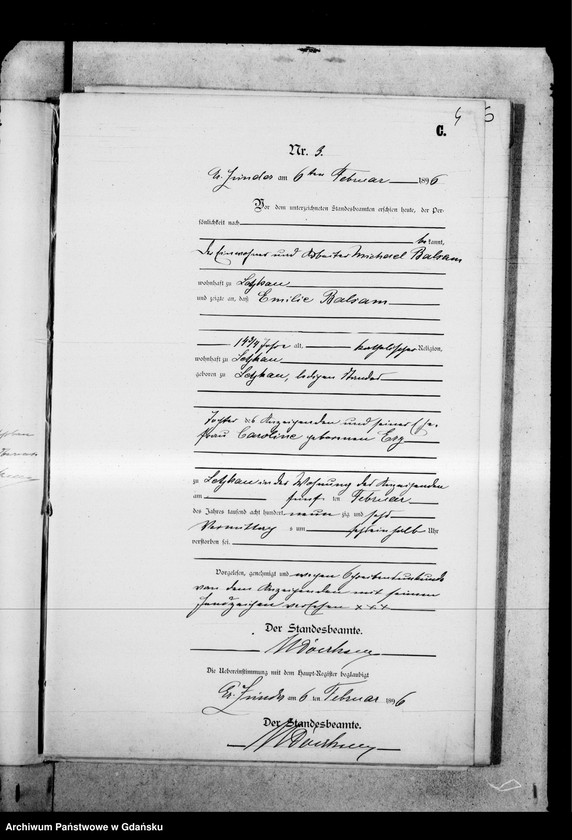 4 5
C.
Nr. 3.
Gr. Zünder am 6ten Februar 1896
Vor dem unterzeichneten Standesbeamten erschien heute, der Per-
sönlichkeit nach
bekannt,
der Einwohner und Arbeiter Michael Balsam
wohnhaft zu Letzkau
und zeigte an, daß Emilie Balsam
14 3/4 Jahre alt, katholischer Religion,
wohnhaft zu Letzkau
geboren zu Letzkau, ledigen Standes
Tochter des Anzeigenden und seiner Ehe-
frau Caroline geborenen
zu Letzkau in der Wohnung des Anzeigenden
am fünf ten Februar
des Jahres tausend acht hundert neun zig und sechs
Vormittag s um halb Uhr
verstorben sei.
Vorgelesen, genehmigt und wegen Schreibensunkunde
von dem Anzeigenden mit seinem
Handzeichen versehen + + +
Der Standesbeamte.
Die Uebereinstimmung mit dem Haupt-Register beglaubigt
Gr. Zünder am 6 ten Februar 1896
Der Standesbeamte.
Archiwum Państwowe w Gdańsku